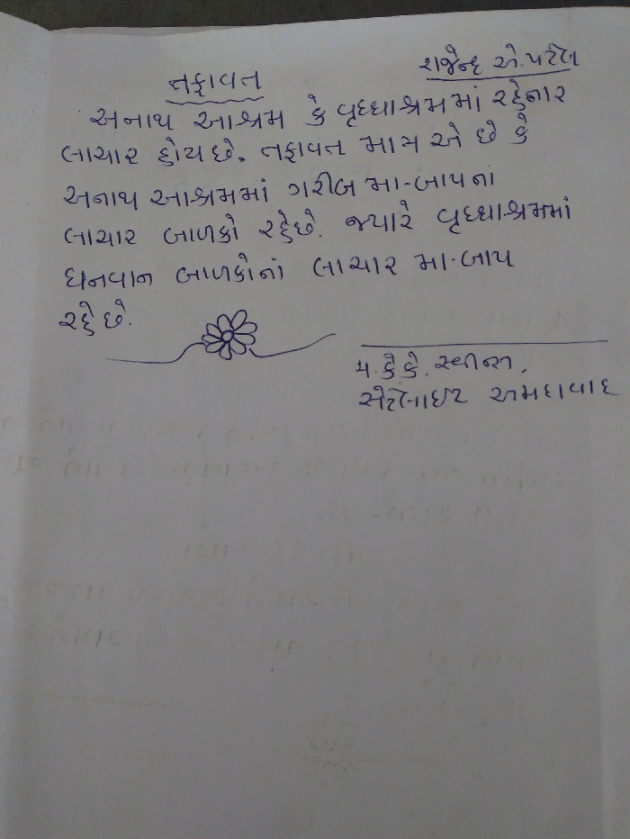 તફાવત
રાજેન્દ્ર એ. પટેલ
અનાથ આશ્રમ કે વૃધ્ધાશ્રમમાં રહેનાર
લાચાર હોય છે. તફાવત માત્ર એ છે કે
અનાથ આશ્રમમાં ગરીબ મા-બાપનાં
લાચાર બાળકો રહે છે. જ્યારે વૃધ્ધાશ્રમમાં
ધનવાન બાળકોનાં લાચાર મા-બાપ
રહે છે.
૫. કે કે.
સેટેલાઈટ અમદાવાદ